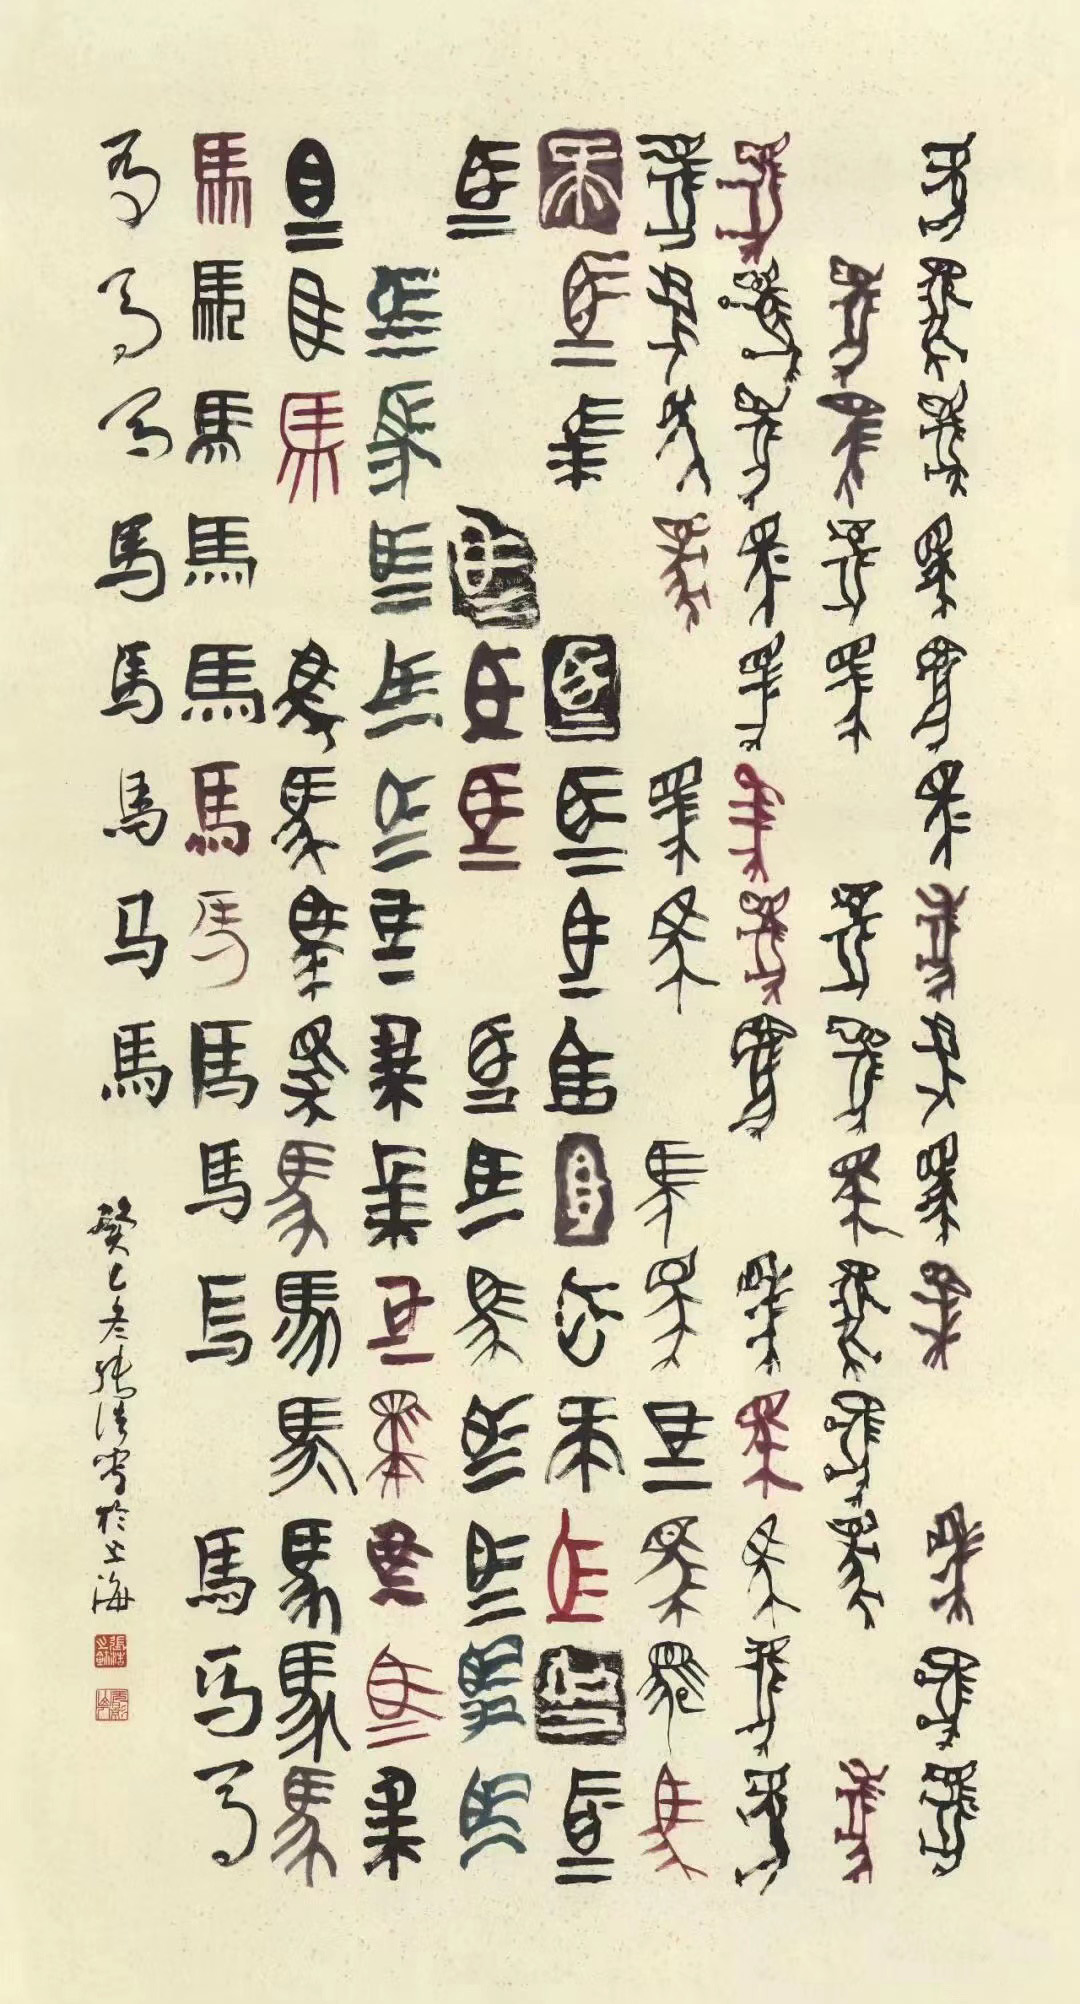 馬馬馬馬馬馬馬馬馬馬馬馬馬
馬馬馬馬馬馬馬馬馬馬馬
馬馬馬馬馬馬馬馬馬馬馬馬馬
馬馬馬馬馬馬馬馬馬馬馬馬
馬馬馬馬馬馬馬馬馬馬馬馬馬
馬馬馬馬馬馬馬馬馬馬馬
馬馬馬馬馬馬馬馬馬馬馬馬馬
馬馬馬馬馬馬馬馬馬馬馬馬馬
馬馬馬馬馬馬馬馬馬馬馬馬馬
馬馬馬馬馬馬马馬
癸巳冬張浩寫於上海